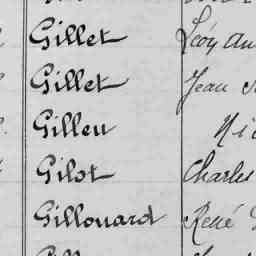 Gillet Léon
Gillet Jean
Gilleu
Gilot Charles
Gillouard René